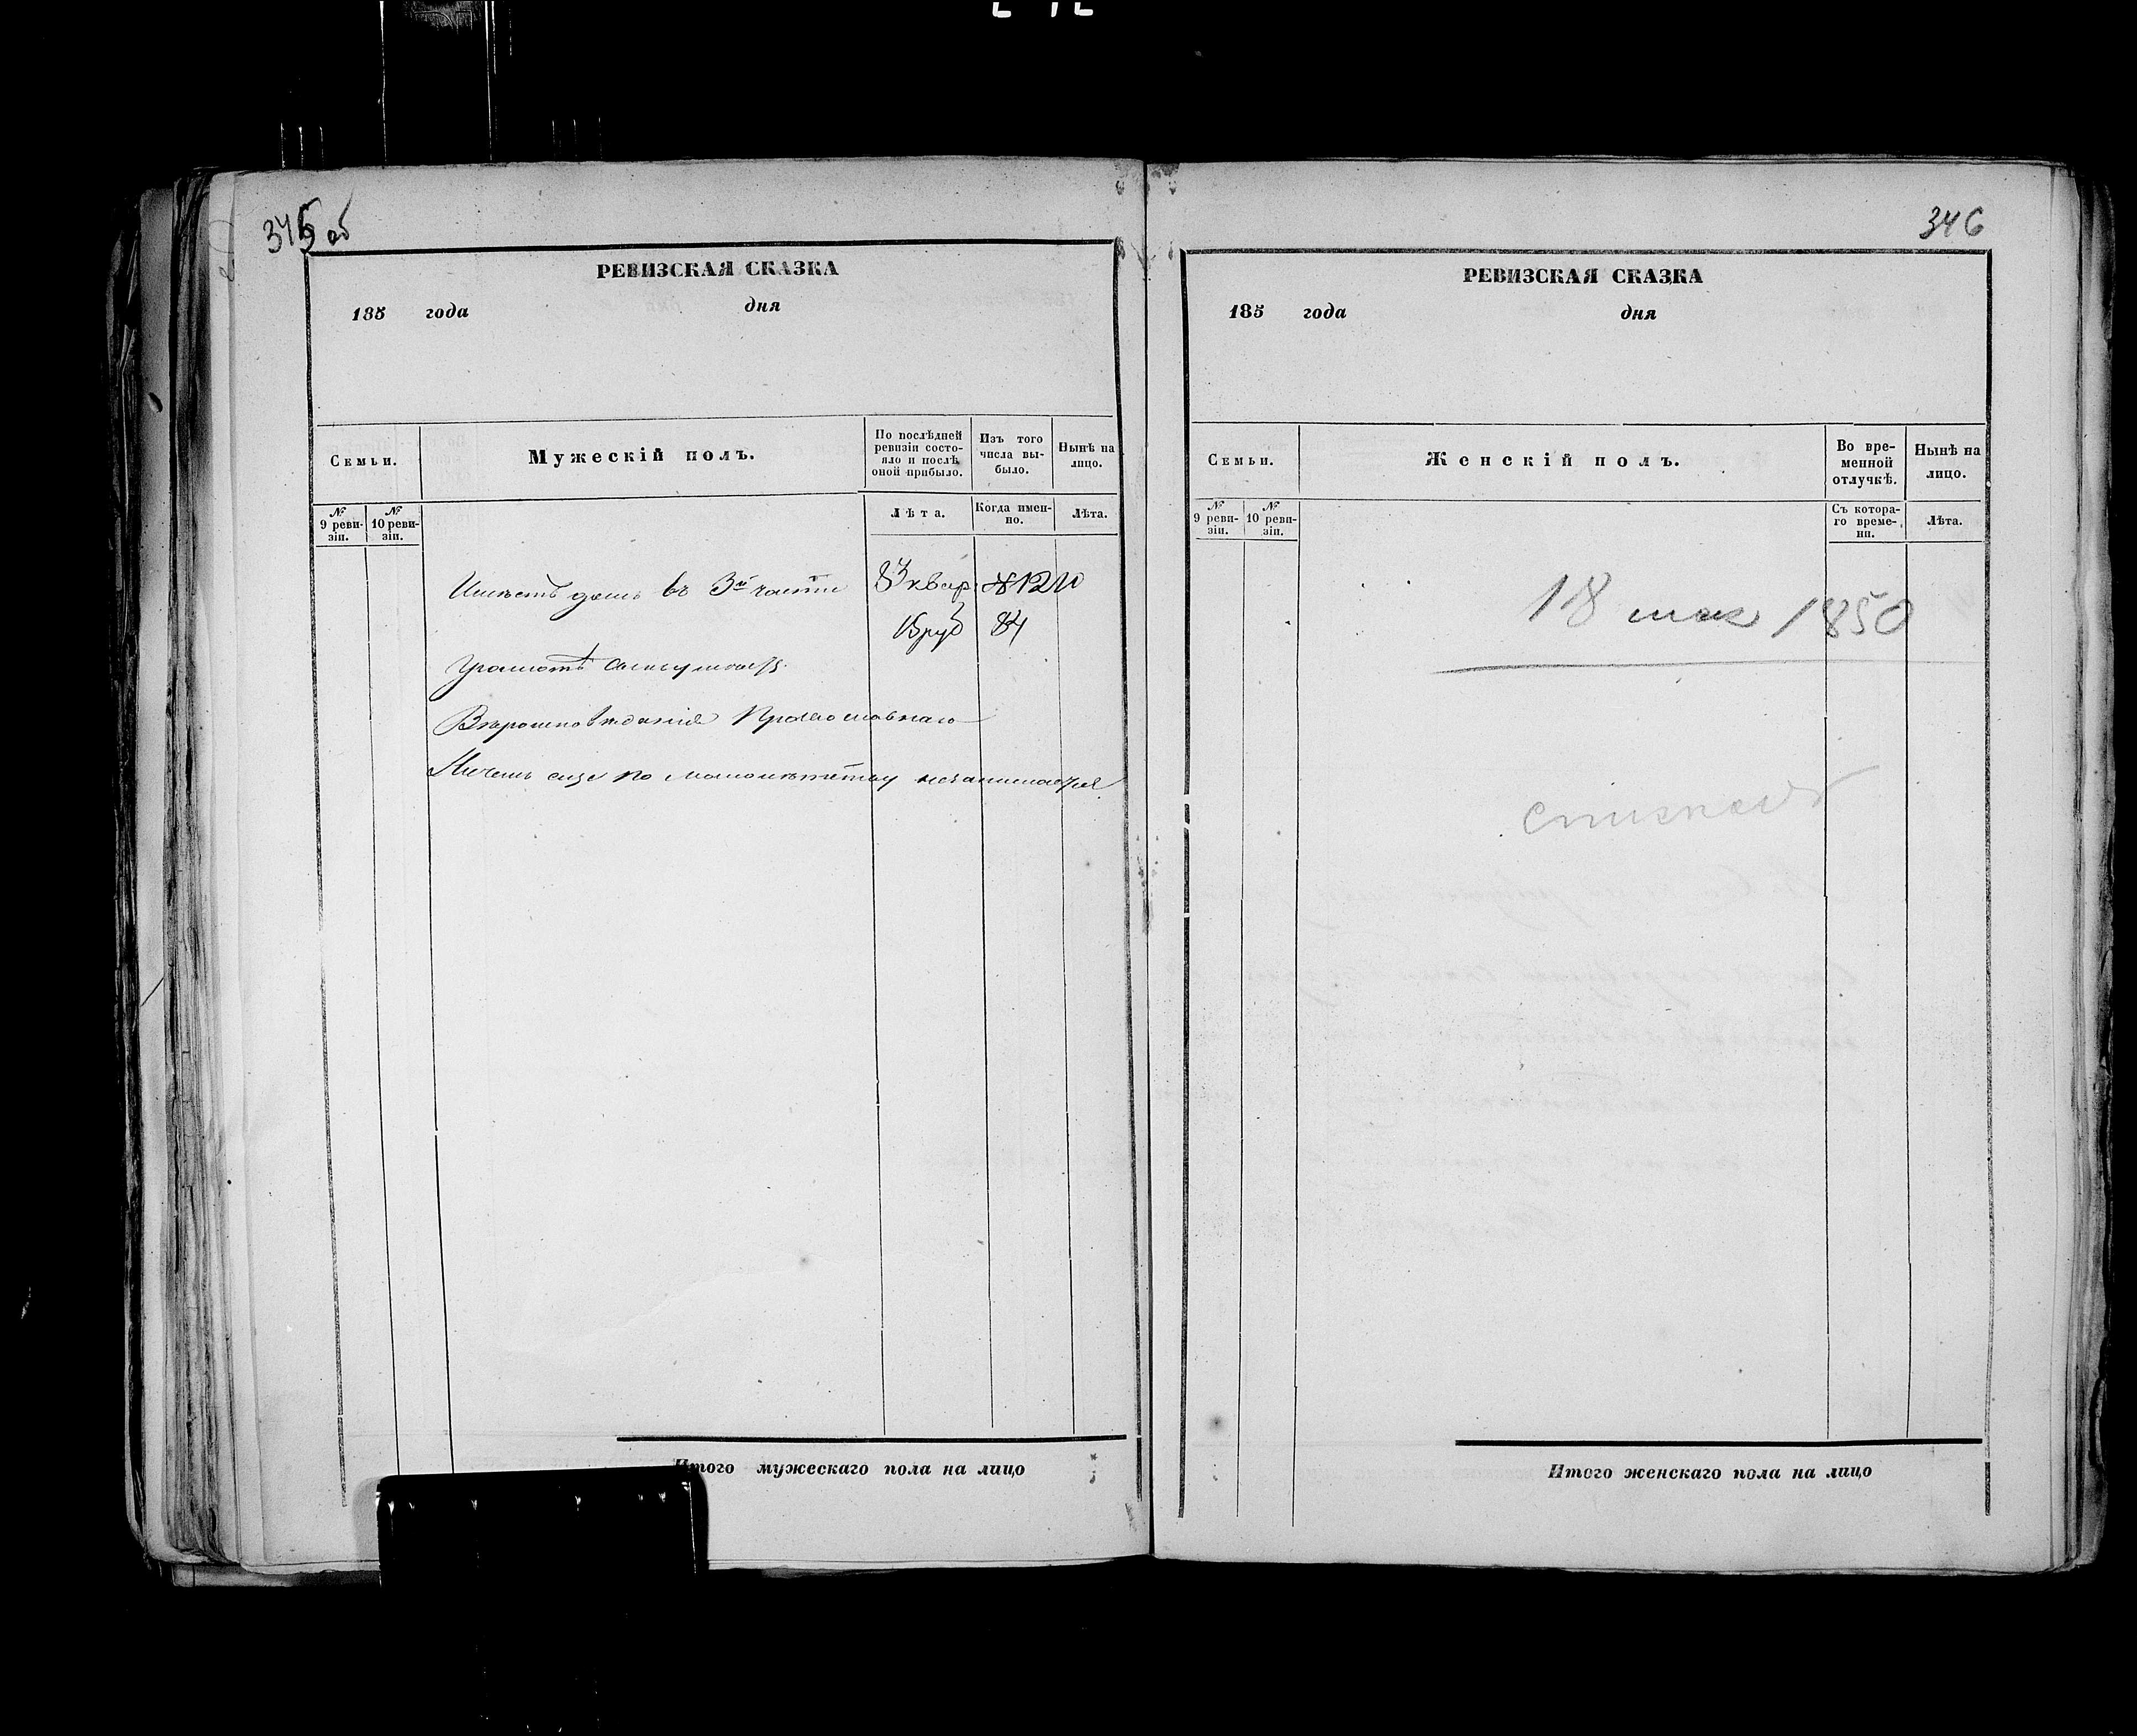 345 об
РЕВИЗСКАЯ СКАЗКА
185 года дня
Семьи.
Мужескій полъ.
По послѣдней ревизіи состояло и послѣ оной прибыло.
Изъ того числа выбыло.
Нынѣ на лицо.
№ 9 ревизіи.
№ 10 ревизіи.
Лѣта.
Когда именно.
Лѣта.
Имѣетъ домъ въ 3й части 3 квар. №
15 руб 84
Грамотѣ
Вѣроисповѣданія Православнаго
Ничемъ еще по малолѣтству незанимается
Итого мужескаго пола на лицо
346
РЕВИЗСКАЯ СКАЗКА
185 года дня
Семьи.
Женскій полъ.
Во временной отлучкѣ.
Нынѣ на лицо.
№ 9 ревизіи.
№ 10 ревизіи.
Съ котораго времени.
Лѣта.
18 мая 1850
Итого женскаго пола на лицо